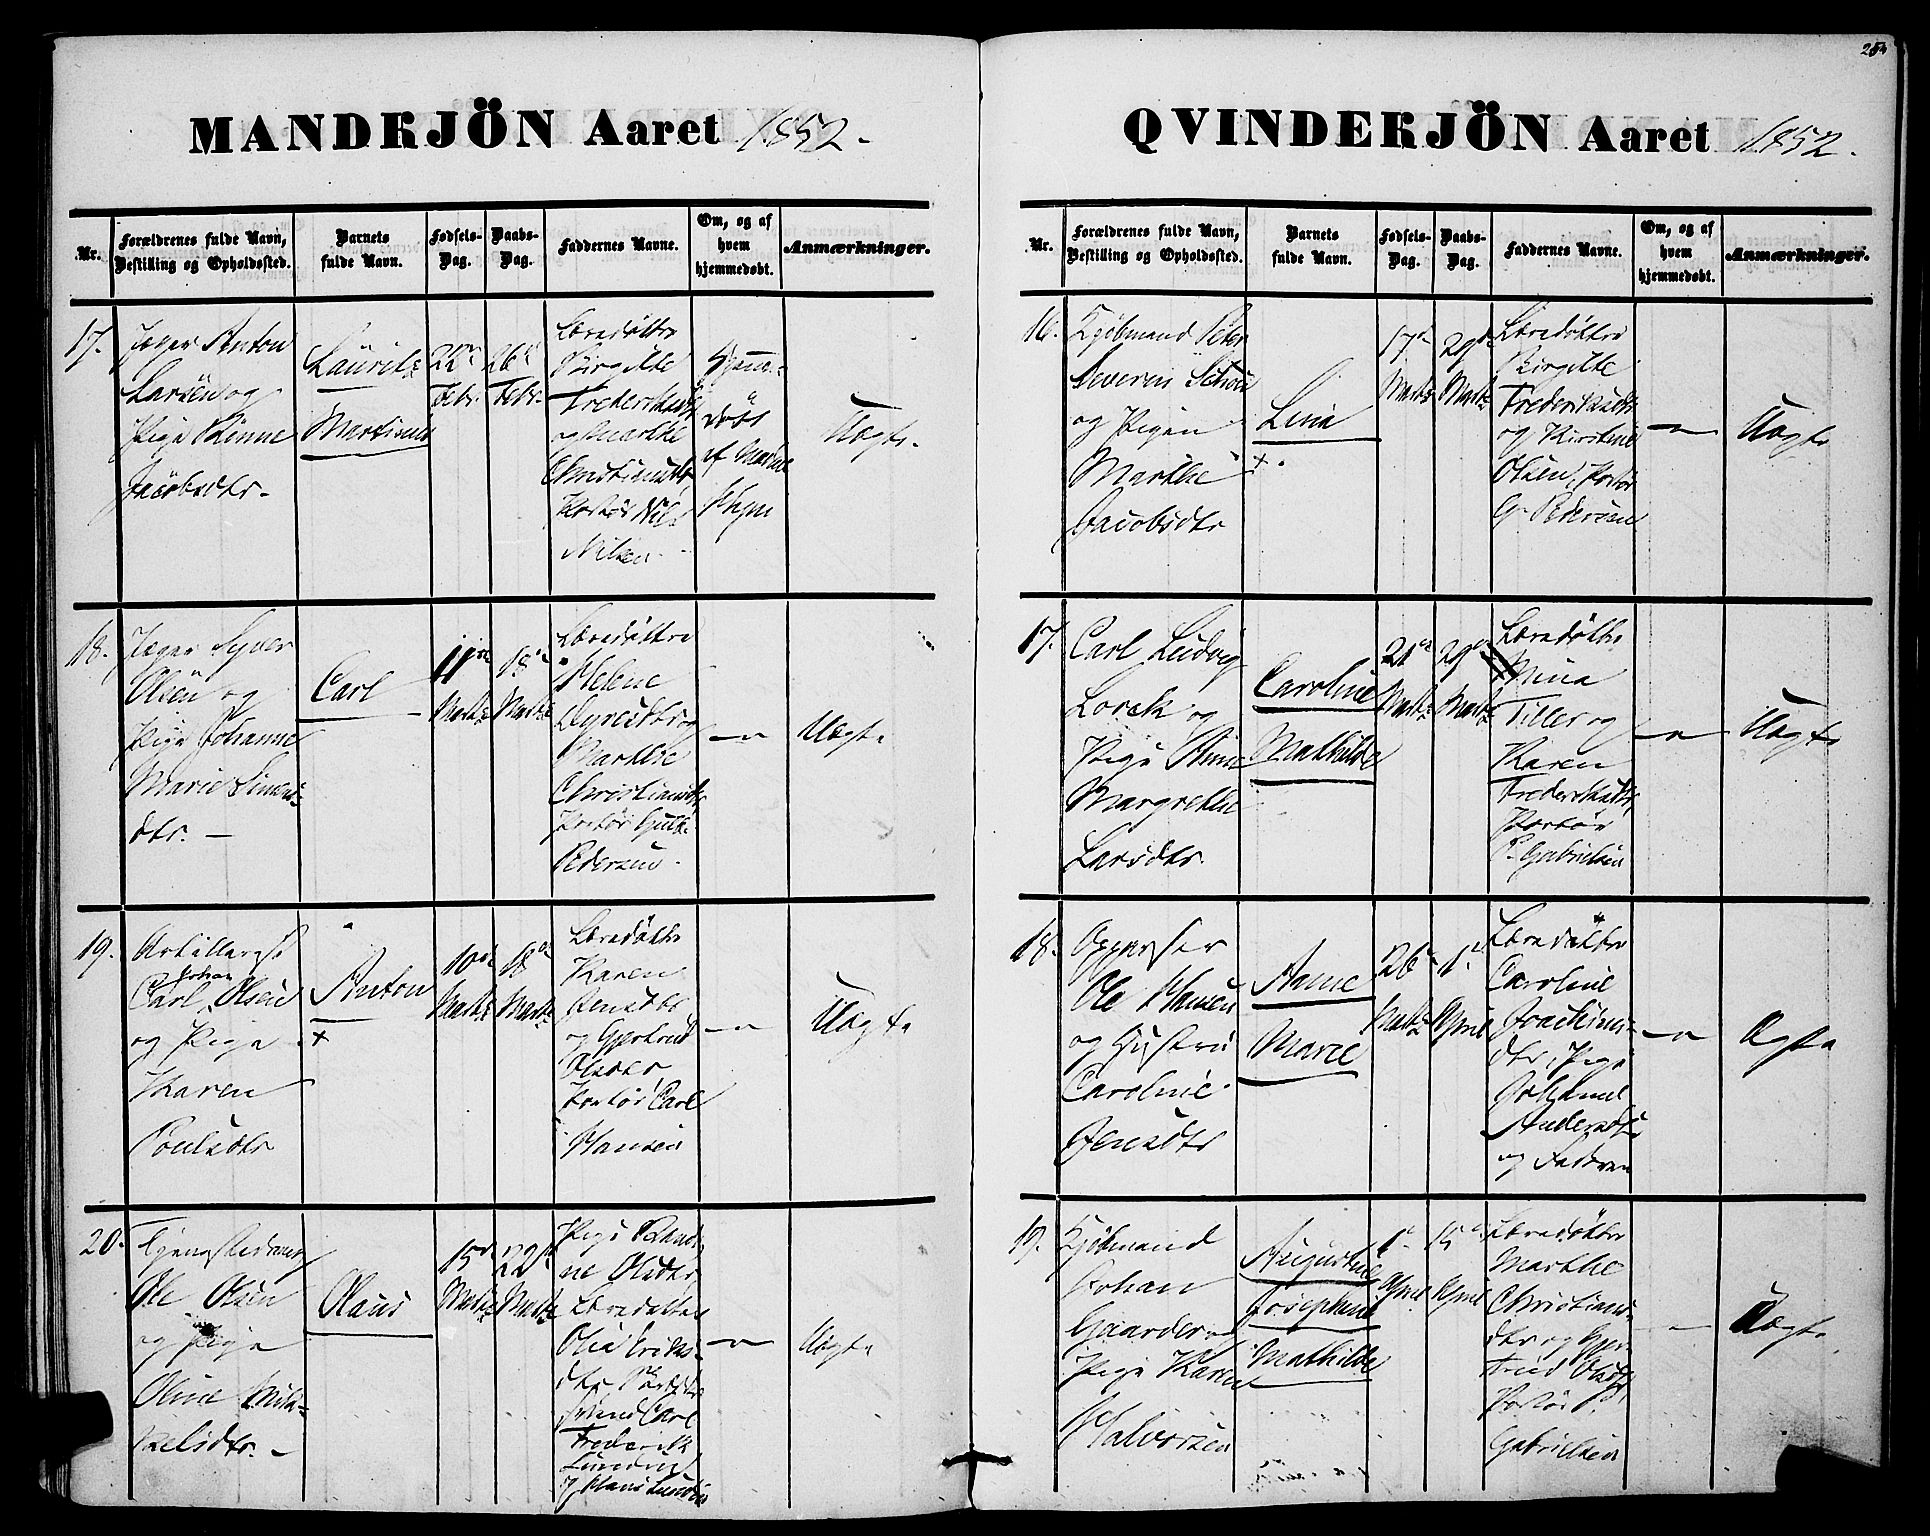 MANDKJÖN Aaret 1852.
Nr.
Forældrenes fulde Navn,
Bestilling og Opholdssted.
Barnets
fulde Navn.
Fødsels-
Dag.
Daabs-
Dag.
Faddernes Navne.
Om, og af
hvem
hjemmedøbt.
Anmærkninger.
17.
Jæger Anton
Larsen og
Pige Rinne
Jacobsdtr.
Lauritz
Martinus
22de
Febr.
26de
Febr.
Læredøttre
Birgitte
Frederiksdtr
og Marthe
Christiansdtr
Portør Nils
Nilsen
Hjem-
døbt
af Madme
Uægte.
18.
Jæger Syver
Olsen og
Pige Johanne
Marie Simens-
dtr.
Carl
11te
Marts
18de
Marts
Læredøttre
Helene
Marthe
Christiansdtr
Portør
Pedersen
Uægte
19.
Artillerist
Carl Johan Olsen
og Pige
Karen
Poulsdtr
Anton
+
10de
Marts
18de
Marts
Læredøttre
Karen
Jensdtr
og Gjertrud
Olsdtr
Portør Carl
Hansen
Uægte
20.
Ole Olsen
og Pige
Oline Mik-
kelsdtr.
Olaus
15de
Marts
22de
Marts
Pige Randi-
ne Olsdtr
Læredøttre
Olea Eriks-
dtr
Svend Carl
Frederik
Lundin
og Hans Lundin
Uægte
254
QVINDEKJÖN Aaret 1852.
Nr.
Forældrenes fulde Navn,
Bestilling og Opholdssted.
Barnets
fulde Navn.
Fødsels-
Dag.
Daabs-
Dag.
Faddernes Navne.
Om, og af
hvem
hjemmedøbt.
Anmærkninger.
16.
Kjøbmand Peter
Severin
og Pigen
Marthe
Jacobsdtr
Lina
+.
17de
Marts
29de
Marts
Læredøttre
Birgitte
Frederiksdtr
og Kirstine
Olsen, Portør
G. Pedersen
Uægte
17.
Carl Ludvig
Lorck og
Pige Anne
Margrethe
Larsdtr.
Caroline
Mathilde
21de
Marts
29de
Marts
Læredøttre
Mina
Tiller og
Karen
Frederiksdtr
Portør
P. Gabrielsen
Uægte
18.
Oppasser
Ole Hansen
og Hustru
Caroline
Jensdtr
Anne
Marie
26de
Marts
1ste
April
Læredøttre
Caroline
Joachims-
dtr, Pige
Johanne
Andersdtr
og Faderen
Ægte
19.
Kjøbmand
Johan
Gaarder og
Pige Karen
Halvorsen
Augustine
Josephine
Mathilde
1ste
April
15de
April
Læredøttre
Marthe
Christians-
dtr og Gjer-
trud Olsdtr,
Portør P.
Gabrielsen
Uægte